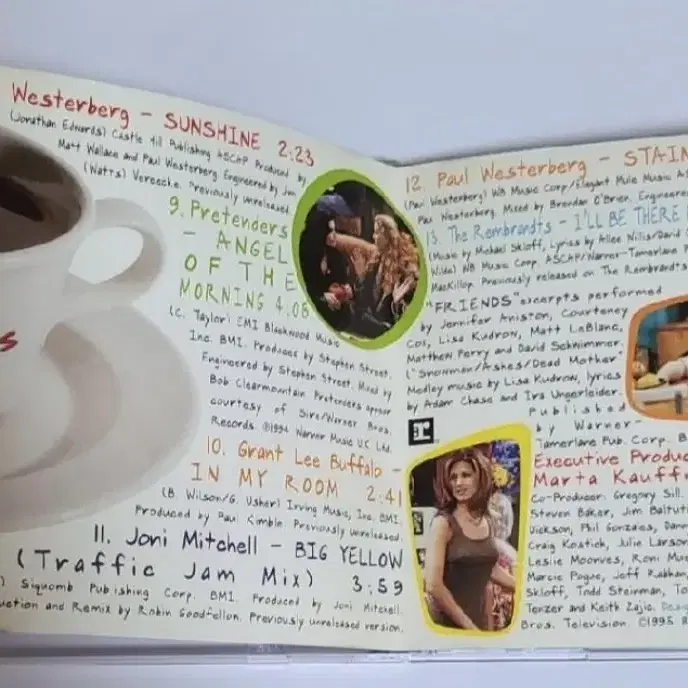 Westerberg - SUNSHINE 2:23
(Jonathan Edwards) Castle Hill Publishing ASCAP Produced by
Matt Wallace and Paul Westerberg Engineered by Jim
(Watts) Vereecke. Previously unreleased.
9. Pretenders
- ANGEL
OF THE
MORNING 4:08
(C. Taylor) EMI Blackwood Music
Inc. BMI. Produced by Stephen Street.
Engineered by Stephen Street. Mixed by
Bob Clearmountain Pretenders appear
courtesy of Sire/Warner Bros.
Records. ©1994 Warner Music U.K. Ltd.
10. Grant Lee Buffalo -
IN MY ROOM 2:41
(B. Wilson/G. Usher) Irving Music, Inc. BMI.
Produced by Paul Kimble Previously unreleased.
11. Joni Mitchell - BIG YELLOW
(Traffic Jam Mix) 3:59
) Siquomb Publishing Corp. BMI. Produced by Joni Mitchell.
uction and Remix by Robin Goodfellon. Previously unreleased version.
12. Paul Westerberg - STAIN
(Paul Westerberg) WB Music Corp./Elegant Mule Music AS
Paul Westerberg. Mixed by Brendan O'Brien. Engineere
13. The Rembrandts - I'LL BE THERE
(Music by Michael Skloff, Lyrics by Allee Willis/David
Wilde) WB Music Corp. ASCAP/Warner-Tamerlane P
MacKillop. Previously released on The Rembrandts
"FRIENDS" excerpts performed
by Jennifer Aniston, Courteney
Cox, Lisa Kudrow, Matt LeBlanc,
Matthew Perry and David Schwimmer.
("Snowman/Ashes/Dead Mother"
Medley music by Lisa Kudrow, lyrics
by Adam Chase and Ira Ungerleider.
Published
by Warner-
Tamerlane Pub. Corp. B
Executive Produc
Marta Kauff
Co-Producer: Gregory Sill.
Steven Baker, Jim Baltut
Dickson, Phil Gonzales, Dann
Craig Kostich, Julie Larson
Leslie Moonves, Roni Mu
Marcie Pogue, Jeff Rabhan,
Skloff, Todd Steinman, To
Tenzer and Keith Zajic. Desi
Bros. Television. ©1995 R